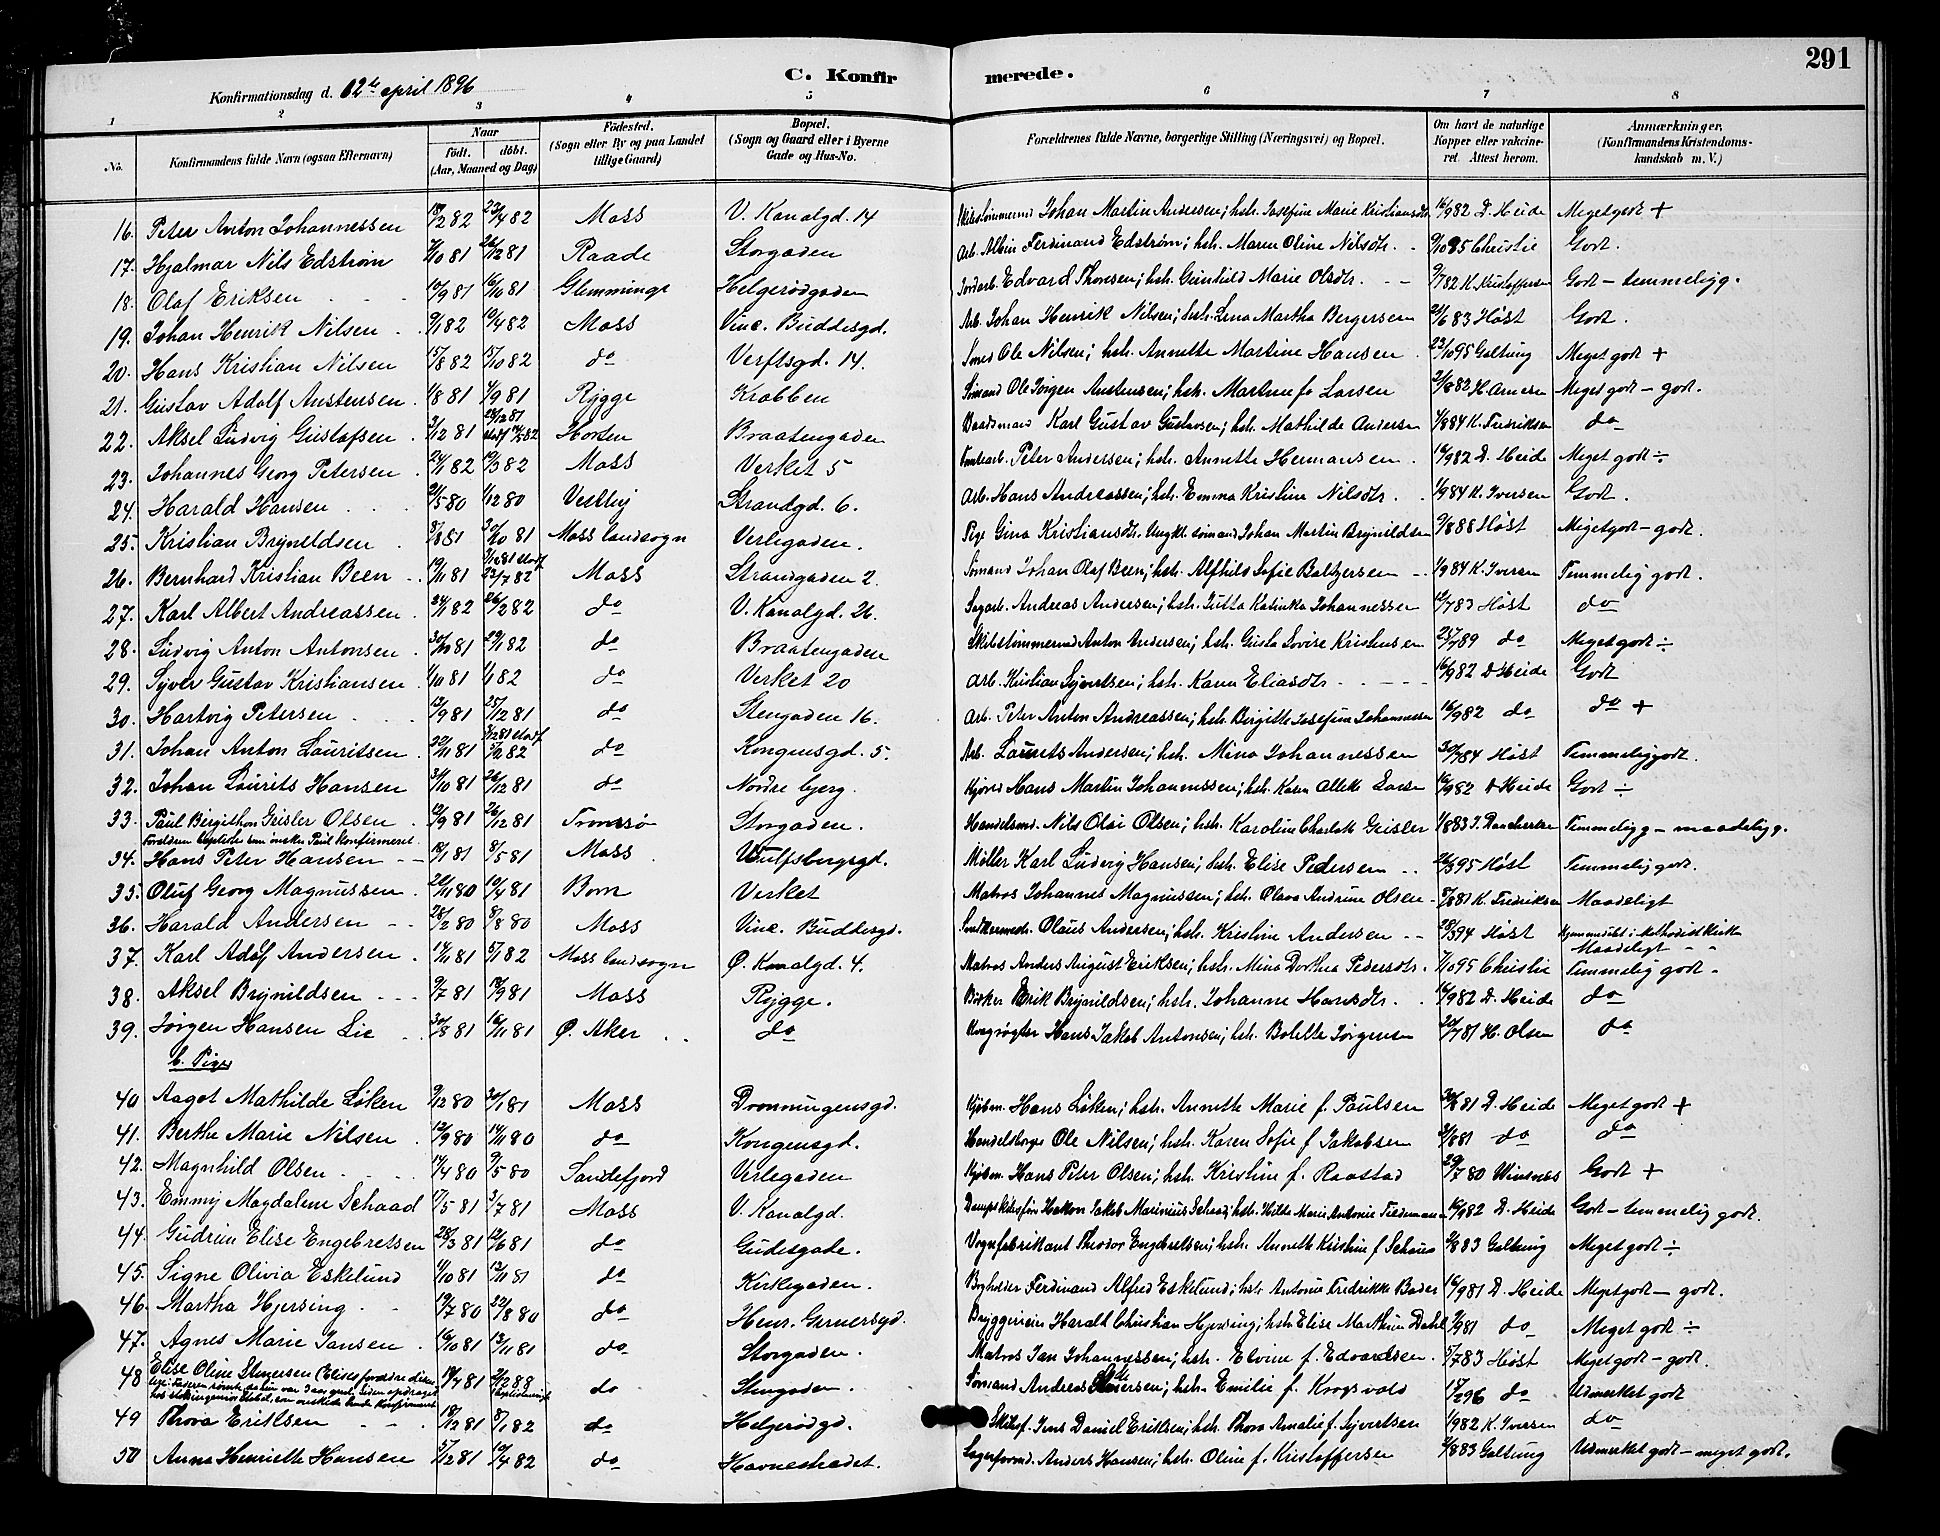 291
C. Konfirmerede.
Konfirmationsdag d. 12te april 1896
1 2 3 4 5 6 7 8
No. Konfirmandens fulde Navn (ogsaa Efternavn) Naar født. døbt. (Aar, Maaned og Dag) Fødested. (Sogn eller By og paa Landet tillige Gaard) Bopæl. (Sogn og Gaard eller i Byerne Gade og Hus-No. Forældrenes fulde Navne, borgerlige Stilling (Næringsvei) og Bopæl. Om havt de naturlige Kopper eller vakcineret. Attest herom. Anmærkninger, (Konfirmandens Kristendomskundskab m. V.)
16. Peter Anton Johannessen 82 23/4 82 Moss V. Kanalgd. 14 Johan Martin Andersen; hstr. Josefine Marie Kristiansdtr. 16/9 82 D. Heide Meget godt +
17. Hjalmar Nils Edstrøm 81 26/12 81 Raade Storgaden Arb. Albin Ferdinand Edstrøm; hstr. Maren Oline Nilsdtr. 95 Christie Godt.
18. Olaf Eriksen 10/9 81 16/10 81 Glemminge Helgerødgaden Jordarb. Edvard Thoresen; hstr. Gunhild Marie Olsdtr. 9/7 82 K. Kristoffersen Godt - temmelig g.
19. Johan Henrik Nilsen 9/1 82 10/4 82 Moss Vinc. Buddesgd. Arb. Johan Henrik Nilsen; hstr. Lina Martha Bergersen 21/6 83 Høst Godt.
20. Hans Kristian Nilsen 15/8 82 15/10 82 do Verftsgd. 14. Ole Nilsen; hstr. Annette Martine Hansen 23/10 95 Galtung Meget godt +
21. Gustav Adolf Anstensen 1/8 81 4/9 81 Rygge Krabben Sømand Ole Jørgen Anstensen; hstr. Martine f. Larsen 2/8 82 H. Arnesen Meget godt - godt.
22. Aksel Ludvig Gustafsen 3/12 81 26/12 81 stadf. 14/5 82 Horten Braatengaden Baadsmand Karl Gustav Gustavsen; hstr. Mathilde Andersen 1/8 84 K. Fredriksen do
23. Johannes Georg Petersen 24/1 82 19/3 82 Moss Verket 5 Peter Andersen; hstr. Annette Hermansen 16/9 82 D. Heide Meget godt ÷
24. Harald Hansen 2/5 80 1/12 80 Vestby Strandgd. 6. Arb. Hans Andreassen; hstr. Emma Kristine Nilsdtr. 1/9 84 K. Iversen Godt.
25. Kristian Brynildsen 8/8 81 30/10 81 Moss landsogn Verlegaden. Pige Gina Kristiansdtr. Ungkl. sømand Johan Martin Brynildsen 9/8 88 Høst Meget godt - godt.
26. Bernhard Kristian Been 19/11 81 81 stadf 23/7 82 Moss Strandgaden 2. Sømand Johan Olaf Been; hstr. Alfhild Sofie Baltzersen 1/9 84 K. Iversen Temmelig godt.
27. Karl Albert Andreassen 24/1 82 26/2 82 do V. Kanalgd. 26. Sagarb. Andreas Andersen; hstr. Jutta Katinka Johannessen 12/7 83 Høst do
28. Ludvig Anton Antonsen 30/10 81 29/1 82 do Braatengaden Skibstømmermd Anton Andersen; hstr. Gusta Lovise Kristensen 25/7 89 do Meget godt ÷
29. Syver Gustav Kristiansen 1/10 81 1/1 82 do Verket 20 Arb. Kristian Syvertsen; hstr. Karen Eliasdtr. 16/9 82 D Heide Godt
30. Hartvig Petersen 12/9 81 25/12 81 do Stengaden 16. Arb. Peter Anton Andreassen; hstr. Birgitte Josefine Johannessen 16/9 82 do do +
31. Johan Anton Lauritsen 22/11 81 81 stadf 82 do Kongensgd. 5. Arb. Laurits Andersen; hstr. Mina Johannessen 30/7 84 Høst Temmelig godt.
32. Johan Laurits Hansen 31/10 81 26/12 81 do Nordre bjerg. Hans Martin Johannessen; hstr. Karen Larsen 16/9 82 D Heide Godt ÷
33. Paul Birgithon Geisler Olsen 12/9 81 26/12 81 Tromsø Storgaden. Handelsmd. Nils Olai Olsen; hstr. Karoline Charlotte Geisler 1/8 83 Temmelig g - maadelig g.
Forældrene baptister som ønsker Paul Konfirmeret.
34. Hans Peter Hansen 18/1 81 8/5 81 Moss Wulfsbergsgd. Møller Karl Ludvig Hansen; hstr. Elise Pedersen 95 Høst Temmelig godt.
35. Oluf Georg Magnussen 26/11 80 10/4 81 Born Verket Matros Johannes Magnussen; hstr. Olava Andrine Olsen 8/8 81 K. Fredriksen Maadeligt
36. Harald Andersen 28/2 80 8/8 80 Moss Vinc. Buddesgd. Olaus Andersen; hstr. Kristine Andersen 94 Høst Hjemmedøbt i Methodistkirke Maadeligt
37. Karl Adolf Andersen 14/11 81 5/1 82 Moss landsogn Ø. Kanalgd. 4. Matros Anders August Eriksen; hstr. Mina Dorthea Pedersdtr. 7/10 95 Christie Temmelig godt
38. Aksel Brynildsen 9/7 81 18/9 81 Moss Rygge. Erik Brynildsen; hstr. Johanne Hansdtr. 16/9 82 D. Heide do
39. Jørgen Hansen Lie 30/8 81 16/11 81 Ø. Aker do Hans Jakob Antonsen; hstr. Bolette Jørgensen 20/7 81 H. Olsen do
b. Piger
40 Aagot Mathilde Løken 9/12 80 30/1 81 Moss Dronningensgd. Kjøbm. Hans Løken; hstr. Annette Marie f. Paulsen 81 D. Heide Meget godt +
41. Berthe Marie Nilsen 12/9 80 14/11 80 do Kongensgd. Handelsborger Ole Nilsen; hstr. Karen Sofie f Jakobsen 2/8 81 do do
42. Magnhild Olsen 14/4 80 9/5 80 Sandefjord Verlegaden Kjøbm. Hans Peter Olsen; hstr. Kristine f. Raastad 29/7 80 Godt +
43. Emmy Magdalene Schaad 17/5 81 3/7 81 Moss V. Kanalgd. Dampskibsfører Hakon Jakob Marinius Schaad; hstr. Hilda Marie Antonie Tiedemann 16/9 82 D. Heide Godt - temmelig godt.
44. Gudrun Elise Engebretsen 28/3 81 12/6 81 do Gudesgade. Vognfabrikant Theodor Engebretsen; hstr. Annette Kristine f Schaus 2/8 83 Galtung Meget godt ÷
45. Signe Olivia Eskelund 1/10 81 13/11 81 do Kirkegaden. Bogholder Ferdinand Alfred Eskelund; hstr. Antonie Fredrikke Bader 16/9 81 D. Heide Meget godt - godt.
46. Martha Hjersing 19/7 80 22/8 80 do Henr. Gernersgd. Bryggerieier Harald Christian Hjersing; hstr Elise Marthine Dahl 9/9 81 do Meget godt ÷
47. Agnes Marie Jansen 10/10 81 13/11 81 do Storgaden. Matros Jan Johannessen; hstr. Elvine f. Edvardsen. 5/7 83 Høst Meget godt - godt.
48 Elise Oline Stenersen (Elises forældre 18/4 81 2/12 88 do Stengaden. Sømand Andreas Stenersen; hstr. Emilie f. Krogsvold 17/2 96 do Udmerket godt
Faderen rømte da hun var 3 aar gml, siden opdraget
49 Thora Eriksen 18/12 81 8/1 82 do Helgerødgd. Skibsf. Jens Daniel Eriksen; hstr. Thora Amalie f. Syvertsen 1/9 82 K. Iversen do
50 Anna Henriette Hansen 5/12 81 10/4 82 do Havnestrædet. Lagerformd. Anders Hansen; hstr. Oline f. Kristoffersen 2/8 83 Galtung Udmerket godt - meget godt.